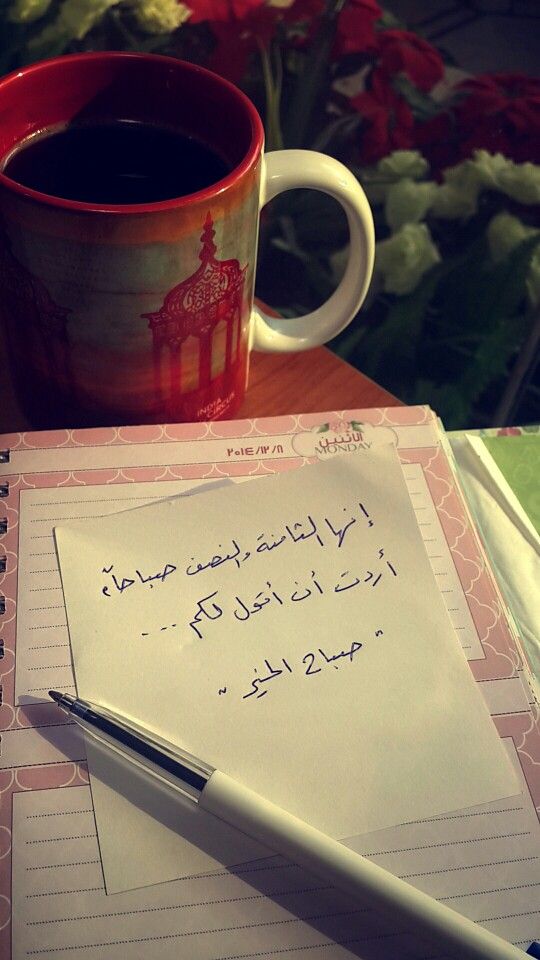 INDIA
CIRCUS
الاثنين
MONDAY
٢٠١٤/١٢/٨
إنها الثامنة والنصف صباحاً،
أردت أن أقول لكم ...
"صباح الخير"